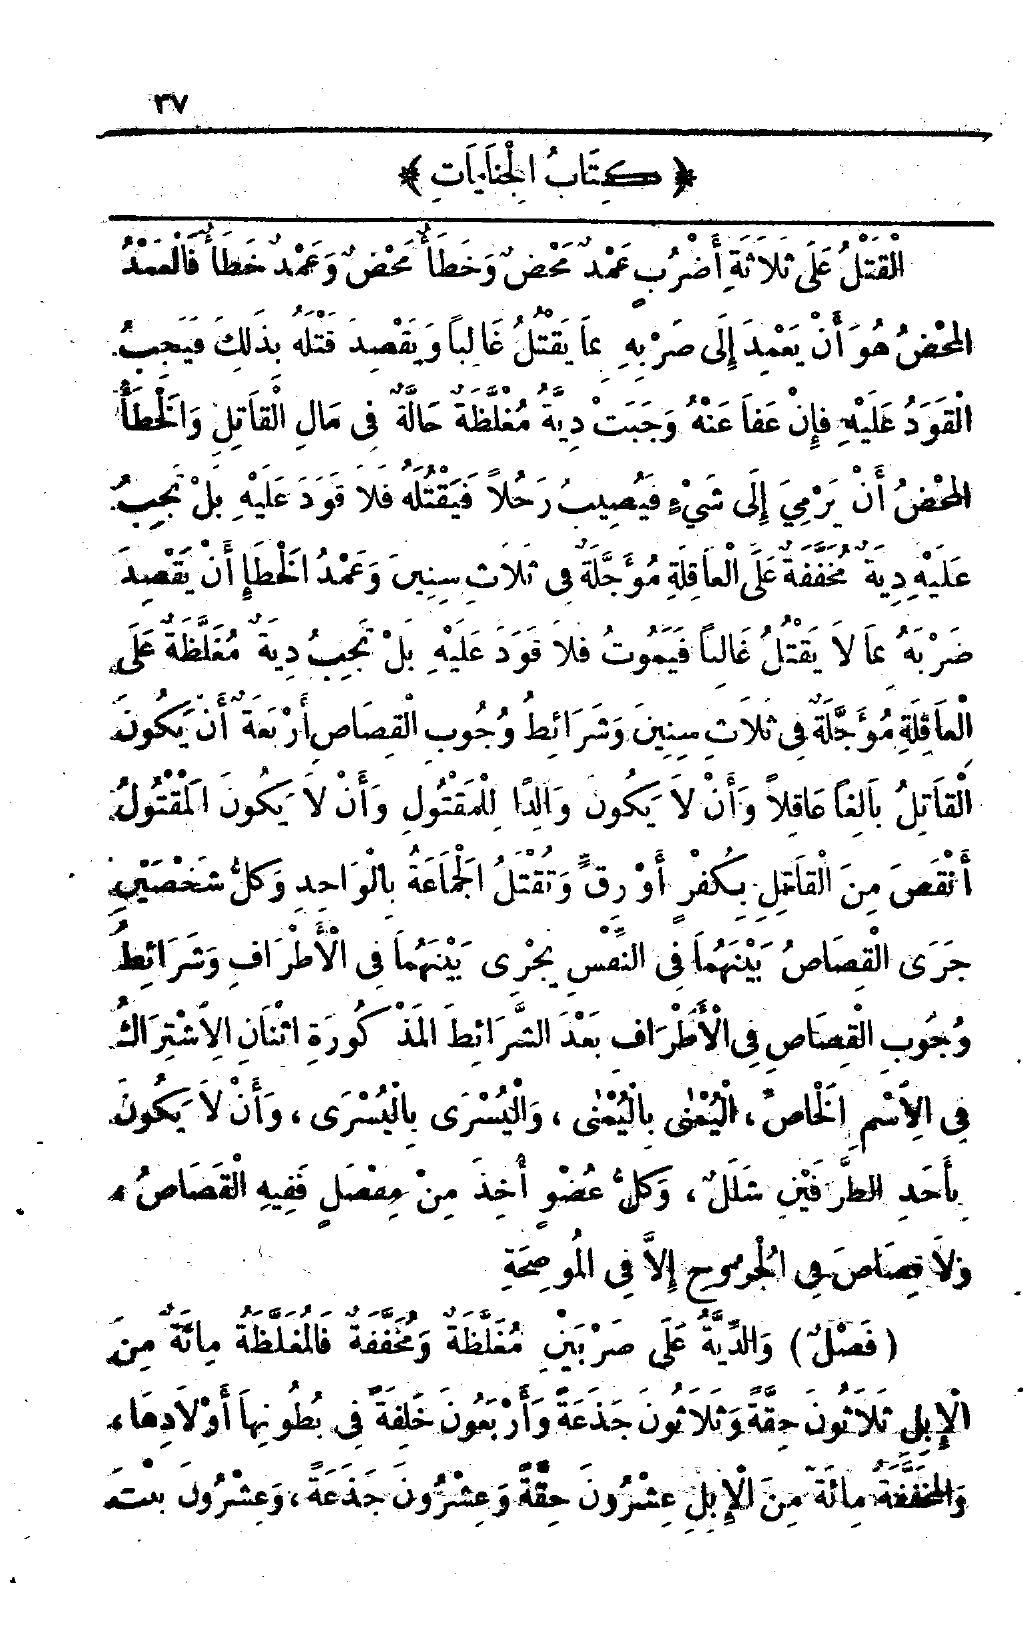 ٣٧
﴿ كِتَابُ الْجِنَايَاتِ ﴾
الْقَتْلُ عَلَى ثَلَاثَةِ أَضْرُبٍ عَمْدٌ مَحْضٌ وَخَطَأٌ مَحْضٌ وَعَمْدٌ خَطَأٌ فَالْعَمْدُ
الْمَحْضُ هُوَ أَنْ يَعْمِدَ إِلَى ضَرْبِهِ بِمَا يَقْتُلُ غَالِبًا وَيَقْصِدَ قَتْلَهُ بِذَلِكَ فَيَجِبُ
الْقَوَدُ عَلَيْهِ فَإِنْ عَفَا عَنْهُ وَجَبَتْ دِيَةٌ مُغَلَّظَةٌ حَالَّةٌ فِى مَالِ الْقَاتِلِ وَالْخَطَأُ
الْمَحْضُ أَنْ يَرْمِيَ إِلَى شَيْءٍ فَيُصِيبُ رَجُلاً فَيَقْتُلَهُ فَلاَ قَوَدَ عَلَيْهِ بَلْ تَجِبُ
عَلَيْهِ دِيَةٌ مُخَفَّفَةٌ عَلَى الْعَاقِلَةِ مُؤَجَّلَةٌ فِى ثَلاَثِ سِنِينَ وَعَمْدُ الْخَطَإِ أَنْ يَقْصِدَ
ضَرْبَهُ بِمَا لاَ يَقْتُلُ غَالِبًا فَيَمُوتُ فَلاَ قَوَدَ عَلَيْهِ بَلْ تَجِبُ دِيَةٌ مُغَلَّظَةٌ عَلَى
الْعَاقِلَةِ مُؤَجَّلَةٌ فِى ثَلاَثِ سِنِينَ وَشَرَائِطُ وُجُوبِ الْقِصَاصِ أَرْبَعَةٌ أَنْ يَكُونَ
الْقَاتِلُ بَالِغًا عَاقِلاً وَأَنْ لاَ يَكُونَ وَالِدًا لِلْمَقْتُولِ وَأَنْ لاَ يَكُونَ الْمَقْتُولُ
أَنْقَصَ مِنَ الْقَاتِلِ بِكُفْرٍ أَوْ رِقٍّ وَتُقْتَلُ الْجَمَاعَةُ بِالْوَاحِدِ وَكُلُّ شَخْصَيْنِ
جَرَى الْقِصَاصُ بَيْنَهُمَا فِى النَّفْسِ يَجْرِى بَيْنَهُمَا فِى الْأَطْرَافِ وَشَرَائِطُ
وُجُوبِ الْقِصَاصِ فِى الْأَطْرَافِ بَعْدَ الشَّرَائِطَ الْمَذْكُورَةِ اثْنَانِ الاِشْتِرَاكُ
فِى الاِسْمِ الْخَاصِّ، الْيُمْنَى بِالْيُمْنَى، وَالْيُسْرَى بِالْيُسْرَى، وَأَنْ لاَ يَكُونَ
بِأَحَدِ الطَّرَفَيْنِ شَلَلٌ، وَكُلُّ عُضْوٍ أُخِذَ مِنْ مِفْصَلٍ فَفِيهِ الْقَصَاصُ،
وَلاَ قِصَاصَ فِى الْجُرُوحِ إِلاَّ فِى الْمُوضِحَةِ
(فَصْلٌ) وَالدِّيَةُ عَلَى ضَرْبَيْنِ مُغَلَّظَةٌ وَمُخَفَّفَةٌ فَالْمُغَلَّظَةُ مِائَةٌ مِنَ
الْإِبِلِ ثَلاَثُونَ حِقَّةً وَثَلاَثُونَ جَذَعَةً وَأَرْبَعُونَ خَلِفَةً فِى بُطُونِهَا أَوْلاَدِهَا،
وَالْمُخَفَّفَةُ مِائَةٌ مِنَ الْإِبِلِ عِشْرُونَ حِقَّةً وَعِشْرُونَ جَذَعَةً، وَعِشْرُونَ بِنْتَ